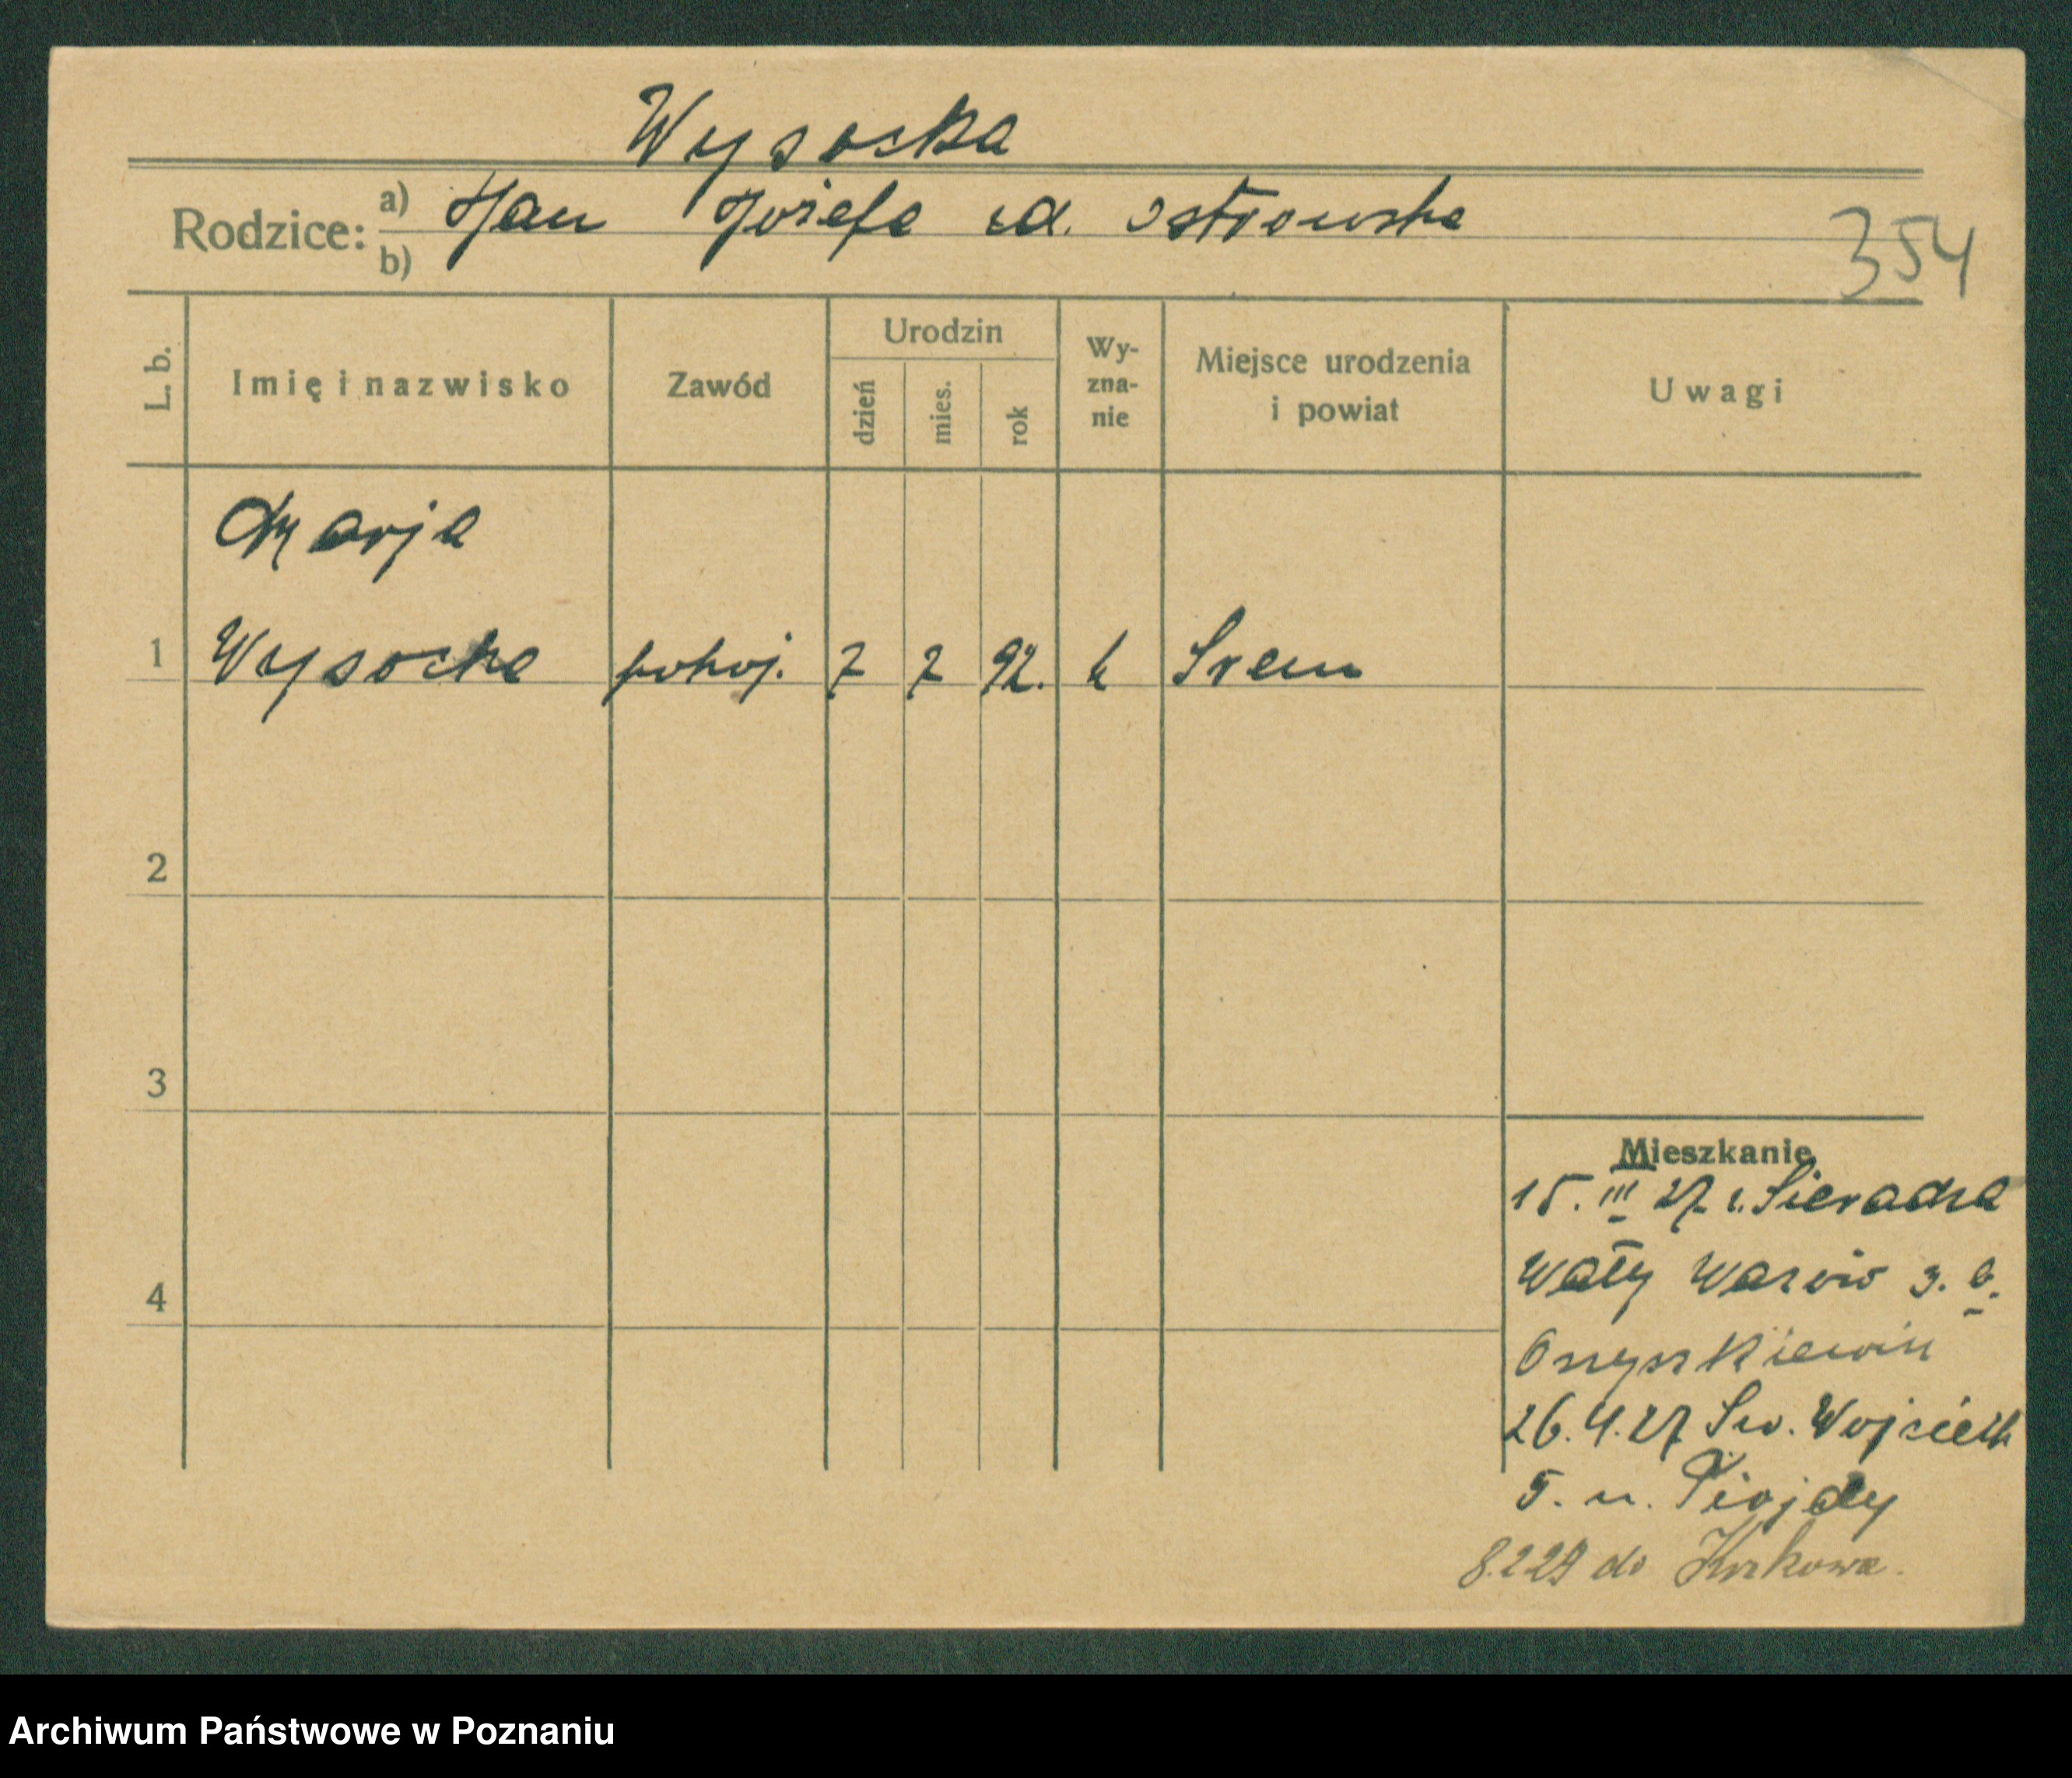 Wysocka
Rodzice: a) Jan Józefa zd. Ostrowska
b)
354
L. b. Imię i nazwisko Zawód Urodzin dzień mies. rok Wy-zna-nie Miejsce urodzenia i powiat Uwagi
Marja
1 Wysocka pokoj. 7 7 92. k Srem
2
3
4
Mieszkanie
15. III 27 z. Sieradza
Wały Wazów 3. b.
Onyszkiewicz
26.4.27 Sw. Wojciech
5. u.
8.2 29 do Krakowa.
Archiwum Państwowe w Poznaniu